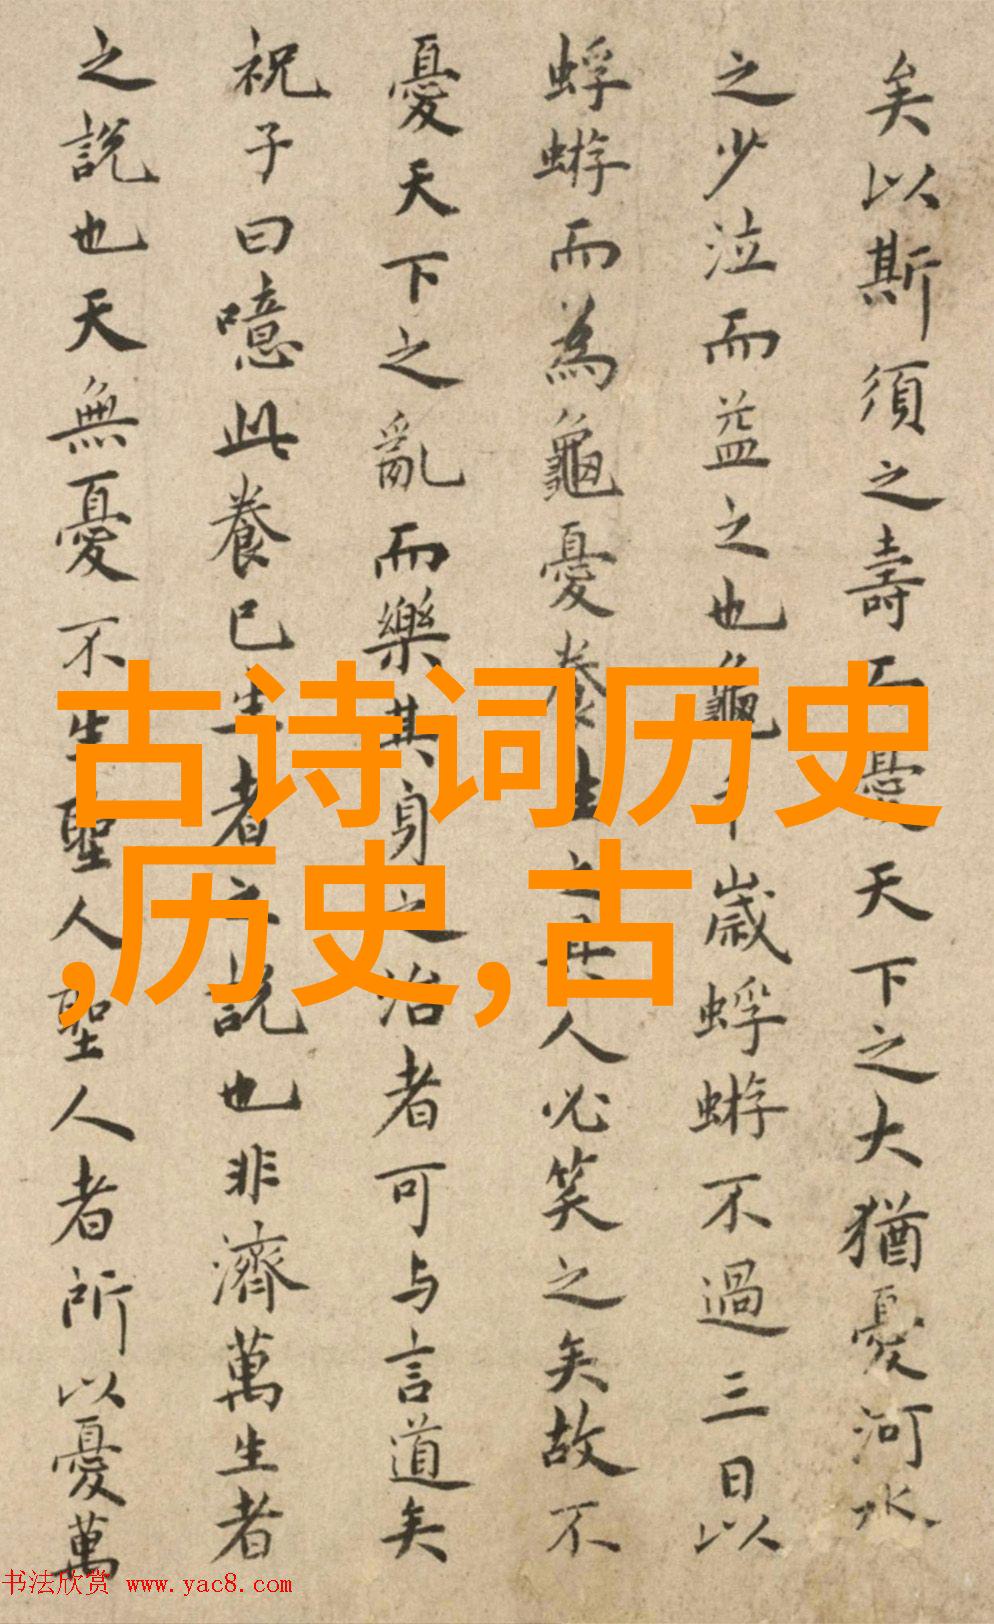 矣以斯須之壽不憂天下之大猶憂河水
之少泣而益之也龜千歲蜉蝣不過三日以
蜉蝣而為龜憂養生之具人必笑之矣故不
憂天下之亂而樂其身之治者可与言道矣
祝子曰噫此養已生者之說也非濟萬生者
之說也天無憂不生聖人聖人者所以憂萬
古诗词历史
,历史,古
书法欣赏 www.yac8.com